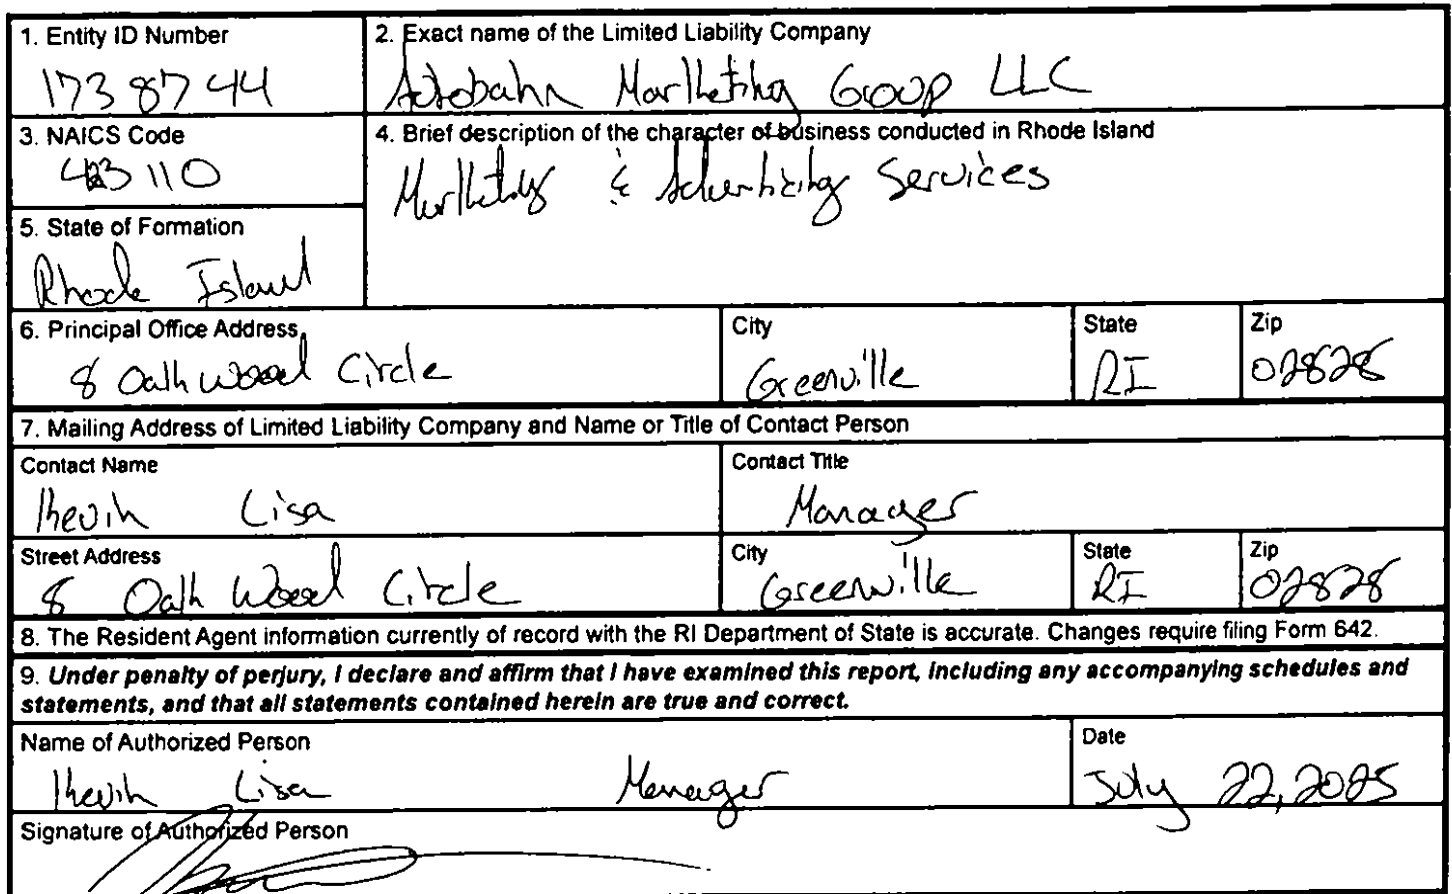 1. Entity ID Number
1738744
2. Exact name of the Limited Liability Company
Autobahn Marketing Group LLC
3. NAICS Code
423110
4. Brief description of the character of business conducted in Rhode Island
Marketing & Advertising Services
5. State of Formation
Rhode Island
6. Principal Office Address
8 Oakwood Circle
City
Greenville
State
RI
Zip
02828
7. Mailing Address of Limited Liability Company and Name or Title of Contact Person
Contact Name
Kevin Lisa
Contact Title
Manager
Street Address
8 Oak Wood Circle
City
Greenville
State
RI
Zip
02828
8. The Resident Agent information currently of record with the RI Department of State is accurate. Changes require filing Form 642.
9. Under penalty of perjury, I declare and affirm that I have examined this report, including any accompanying schedules and
statements, and that all statements contained herein are true and correct.
Name of Authorized Person
Kevin Lisa Manager
Date
July 22, 2025
Signature of Authorized Person